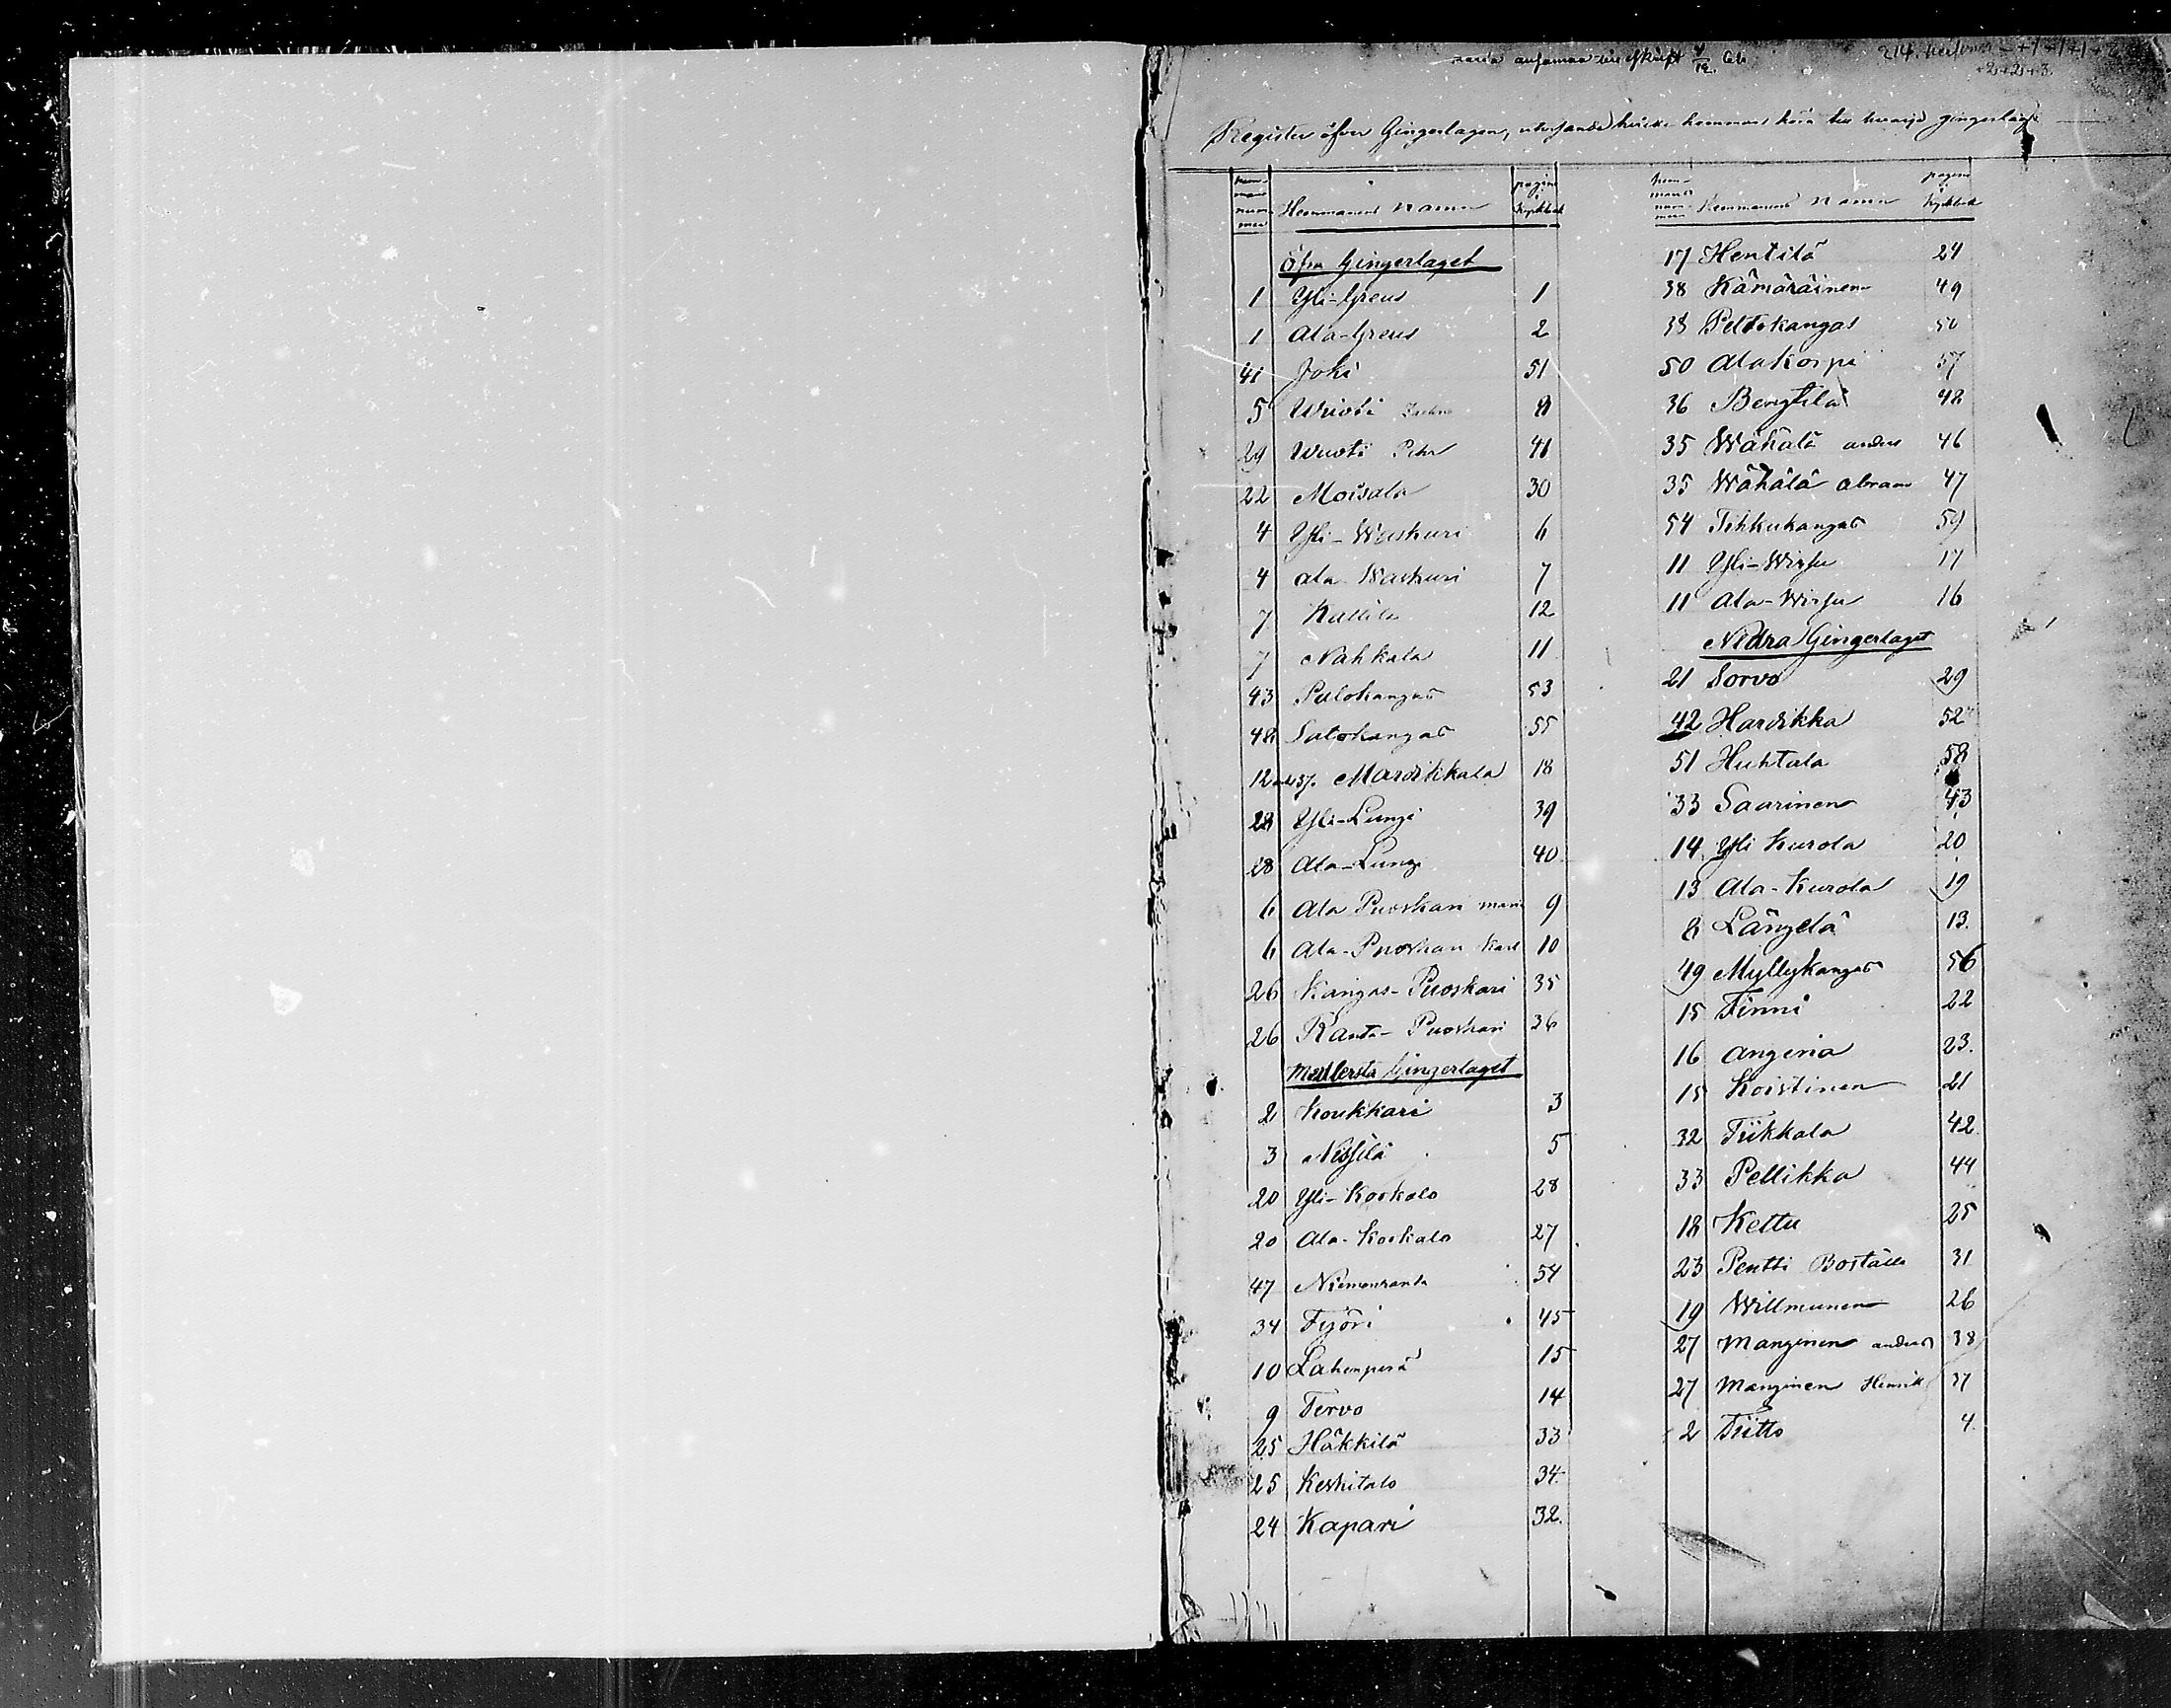 Register öfver Gingerlagen, utvisande hvilka hemman höra till hvarje gingerlag
hemmans nummer Hemmanens namn pagina i kyrkbok
Öfra Gingerlaget
1 Yli-Greus 1
1 Ala-Greus 2
41 Joki 51
5 Wuoti 8
29 Wuoti Pehr 41
22 Moisala 30
4 Yli-Waskuri 6
4 Ala Waskuri 7
7 Kallila 12
7 Nahkala 11
43 Palokangas 53
48 Salokangas 55
12 och 37. Mardikkala 18
28 Yli-Lungi 39
28 Ala-Lungi 40
6 Ala Puoskari 9
6 Ala-Puoskari Karl 10
26 Kangas-Puoskari 35
26 Ranta-Puoskari 36
Medlersta Gingerlaget
2 Koukkari 3
3 Nissilä 5
20 Yli-Koskalo 28
20 Ala-Koskalo 27
47 Niemenranta 54
34 Fyöri 45
10 Lahenperä 15
9 Tervo 14
25 Häkkilä 33
25 Keskitalo 34
24 Kapari 32.
hemmans nummer Hemmanens namn pagina i kyrkbok
17 Hentilä 24
38 Kämäräinen 49
38 Peltokangas 50
50 Alakorpi 57
36 Bengtila 48
35 Wähälä anders 46
35 Wähälä abram 47
54 Tihkukangas 59
11 Yli-Wirsu 17
11 Ala-Wirsu 16
Nedra Gingerlaget
21 Sorvo 29
42 Hardikka 52
51 Huhtala 58
33 Saarinen 43
14 Yli Kurola 20
13 Ala-Kurola 19
8 Längelä 13.
49 Myllykangas 56
15 Finni 22
16 Angeria 23.
15 Koistinen 21
32 Tiikkala 42.
33 Pellikka 44
18 Kettu 25
23 Pentti Boställe 31
19 Willmunen 26
27 Manginen anders 38
27 Manginen Henrik 37
2 Tiitto 4.